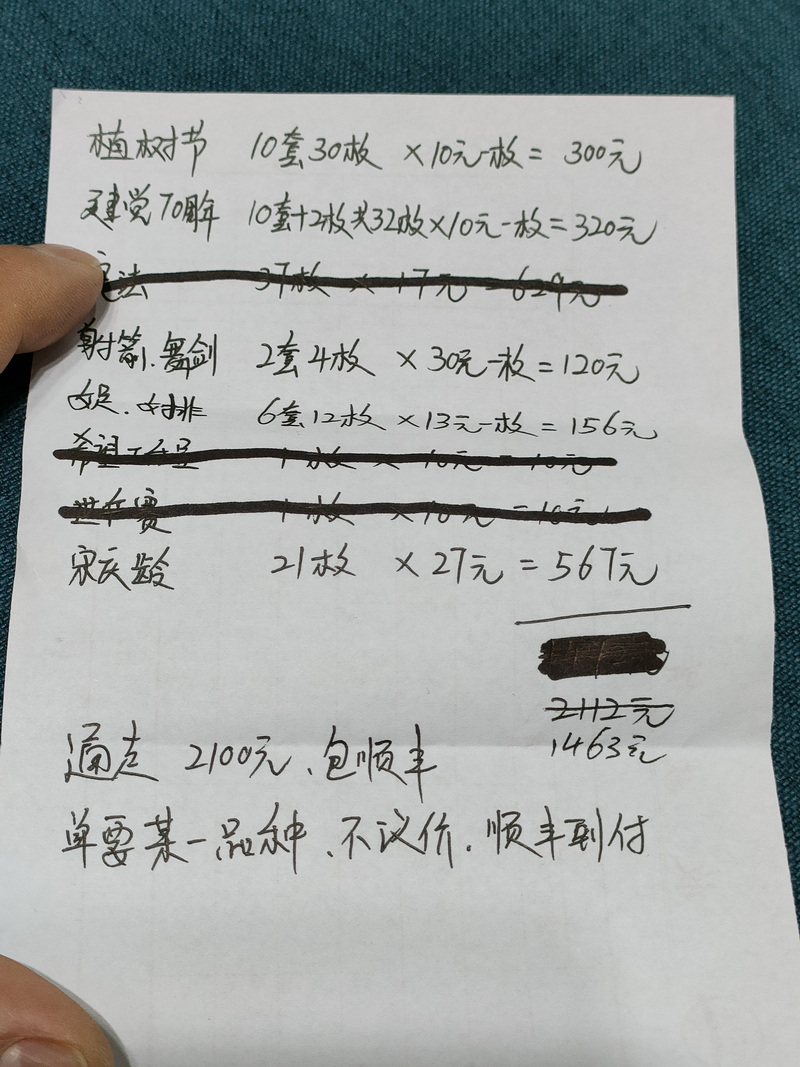 植树节 10套30枚 ×10元一枚= 300元
建党70周年 10套+2枚共32枚×10元一枚=320元
宪法 37枚 × 17元 = 629元
射箭.舞剑 2套4枚 ×30元一枚=120元
女足.女排 6套12枚 ×13元一枚= 156元
希望工程 1枚 × 10元 = 10元
1枚 ×10元 = 10元
宋庆龄 21枚 ×27元 = 567元
2112元
1463元
通走 2100元、包顺丰
单要某一品种、不议价.顺丰到付